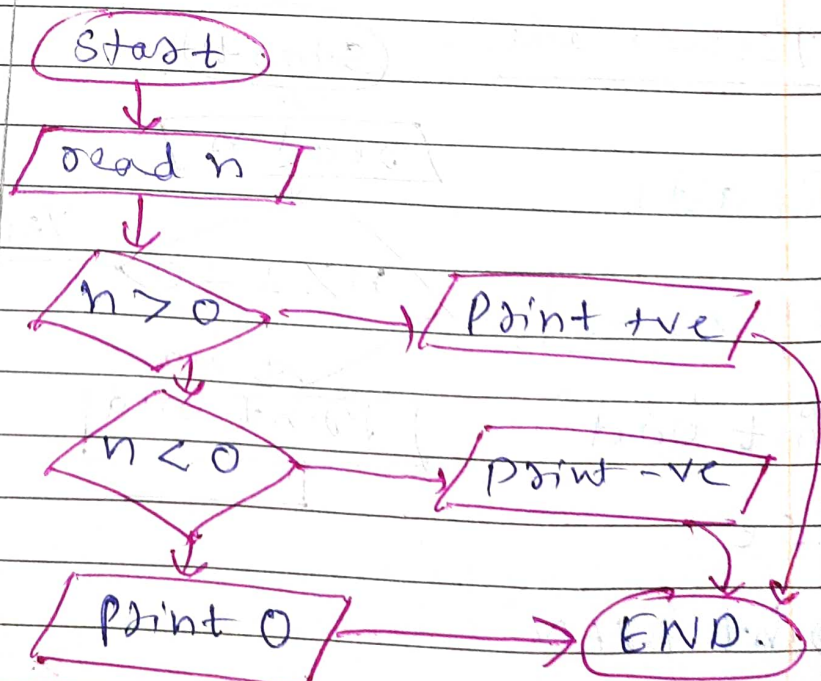 Start
read n
n > 0
Print +ve
n < 0
print -ve
print 0
END.